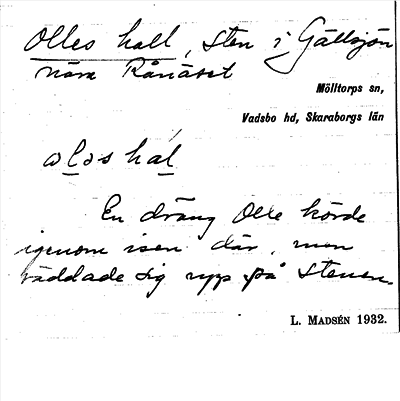 Olles hall, Sten i Gällsjön
nära Rånäset
Mölltorps sn,
Vadsbo hd, Skaraborgs län
ɷləs hal
En dräng Olle körde
igenom isen där, men
räddade sig upp på stenen.
L. MADSÉN 1932.